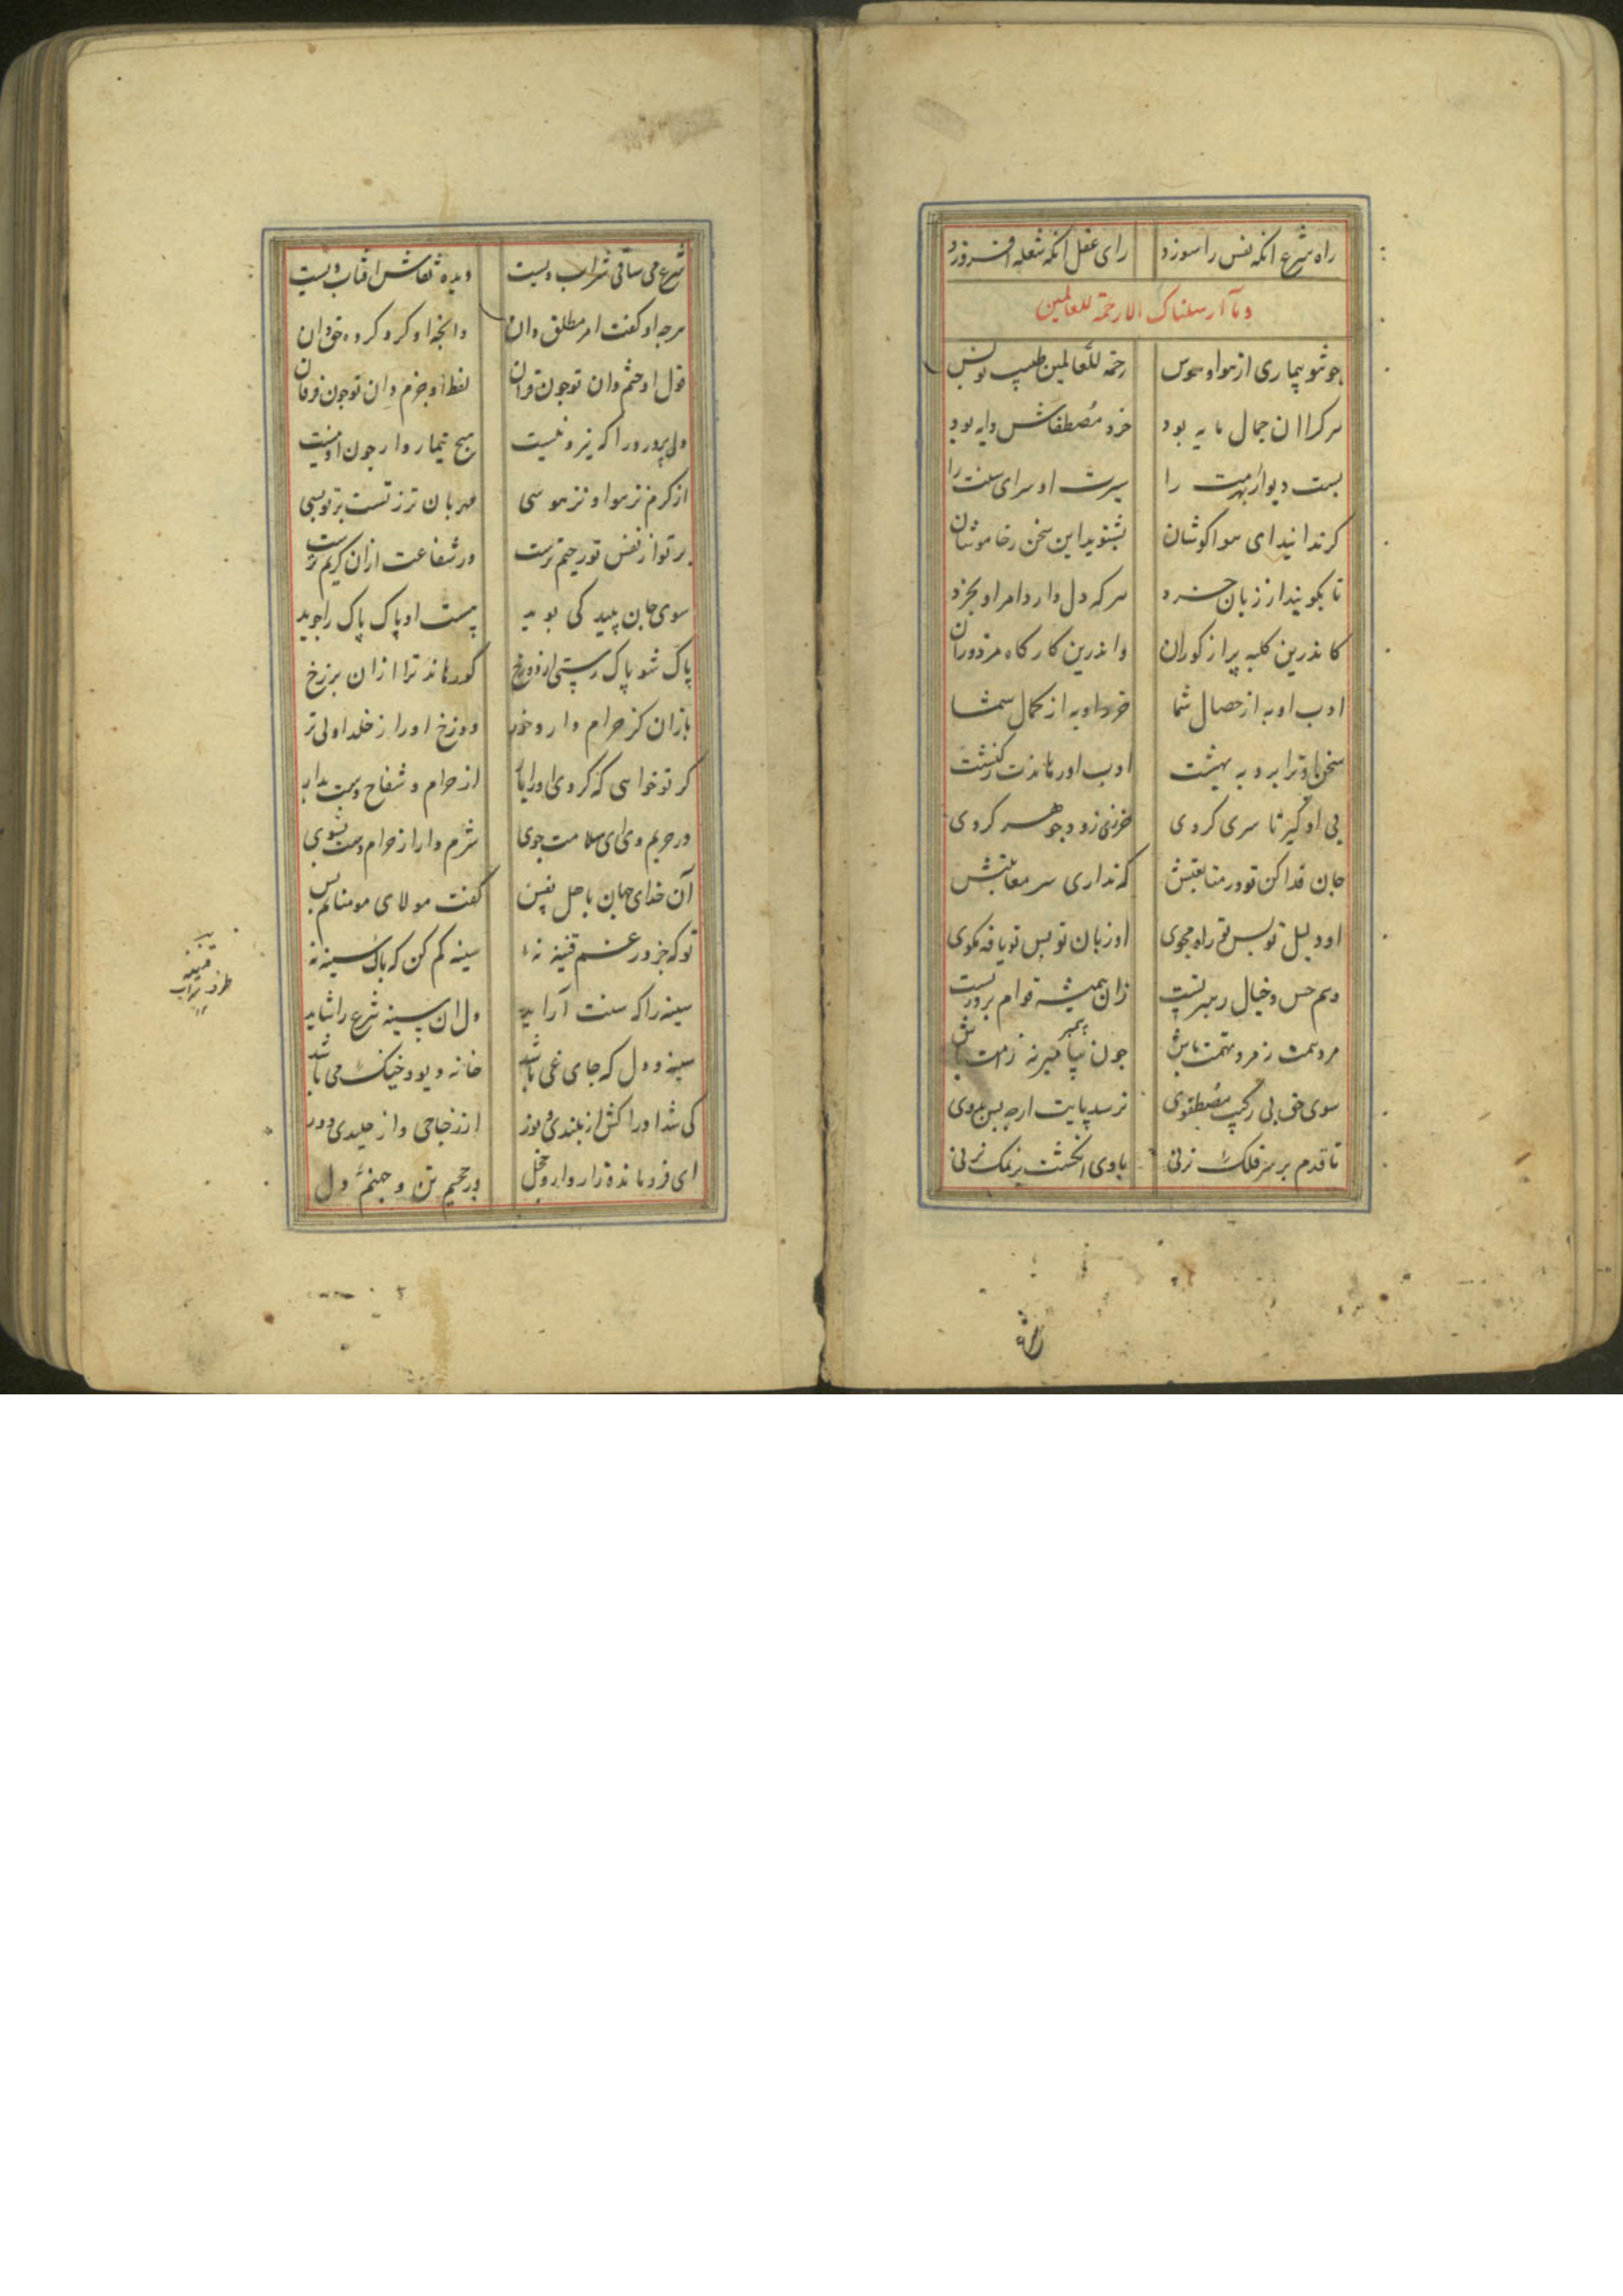 راه شرع انکه نفس را سوزد رای عقل انکه شعله افروزد
وما ارسلناک الا رحمة للعالمین
چو شو بیماری از هوا و هوس رحمة للعالمین طبیب تو بس
هرکرا ان جمال مایه بود خرد مصطفاش دایه بود
بست دیوار بهر مت را سیرت او سرای سنت را
کر ندانید ای هوا کوشان بشنوید این سخن ز خاموشان
تا بکویند از زبان خرد هر که دل دارد امر او بخرد
کاندرین کلبه پر از کوران واندرین کارکاه مزدوران
ادب او به از خصال شما خرد او به از کمال شما
سخن او ترا برد به بهشت ادب او رهاندت ز کنشت
پی او کیر تا سری کردی خزنی زود جوهری کردی
جان فدا کن تو در متابعتش که نداری سر معاتبتش
او دلیل تو بس تو راه مجوی او زبان تو بس تو یافه مکوی
وهم و حس و خیال رهبر تست زان همیشه قوام بر در تست
مرد همت نه مرد تهمت باش چون پیمبر نه ز امت باش
سوی حق بی رکیب مصطفوی نرسد پایت ارچه بس بدوی
تا قدم بر سر فلک نزنی با وی انکشت بر نمک نزنی
شرع می ساقی شراب ویست دیده نقاش افتاب ویست
هرچه او کفت امر مطلق دان وانچه او کرد کرده حق دان
قول او ختم دان تو چون قران لفظ او جزم دان تو چون فرقان
دل پر درد را که نیرو نیست هیچ تیماردار چون او نیست
از کرم نز هوا و نز هوسی مهربان تر ز تست بر تو بسی
بر تو از نفس تو رحیم ترست در شفاعت ازان کریم ترست
سوی جان پلید کی پوید هست او پاک پاک را جوید
پاک شو پاک رستی از دوزخ کو رهاند ترا ازان برزخ
باز ان کز حرام دارد خور دوزخ او را ز خلد اولی تر
کر تو خواهی که کردی او را یار از حرام و شفاح دست بدار
در حریم وی ای سلامت جوی شرم دار از حرام دست بشوی
آن خدای جهان باهل نفس کفت مولای مومنانم بس
تو که جز در غم قنینه نه سینه کم کن که پاک سینه نه
سینه را که سنت آراید دل ان سینه شرع را شاید
سینه و دل که جای غی باشد خانه دیو و خیک می باشد
کی شد او را کش از بلندی و نور از زجاجی و از جلیدی دور
ای فرو مانده زار و وار و خجل در جحیم تن و جهنم دل
قنینه
ظرف شراب
۱۲